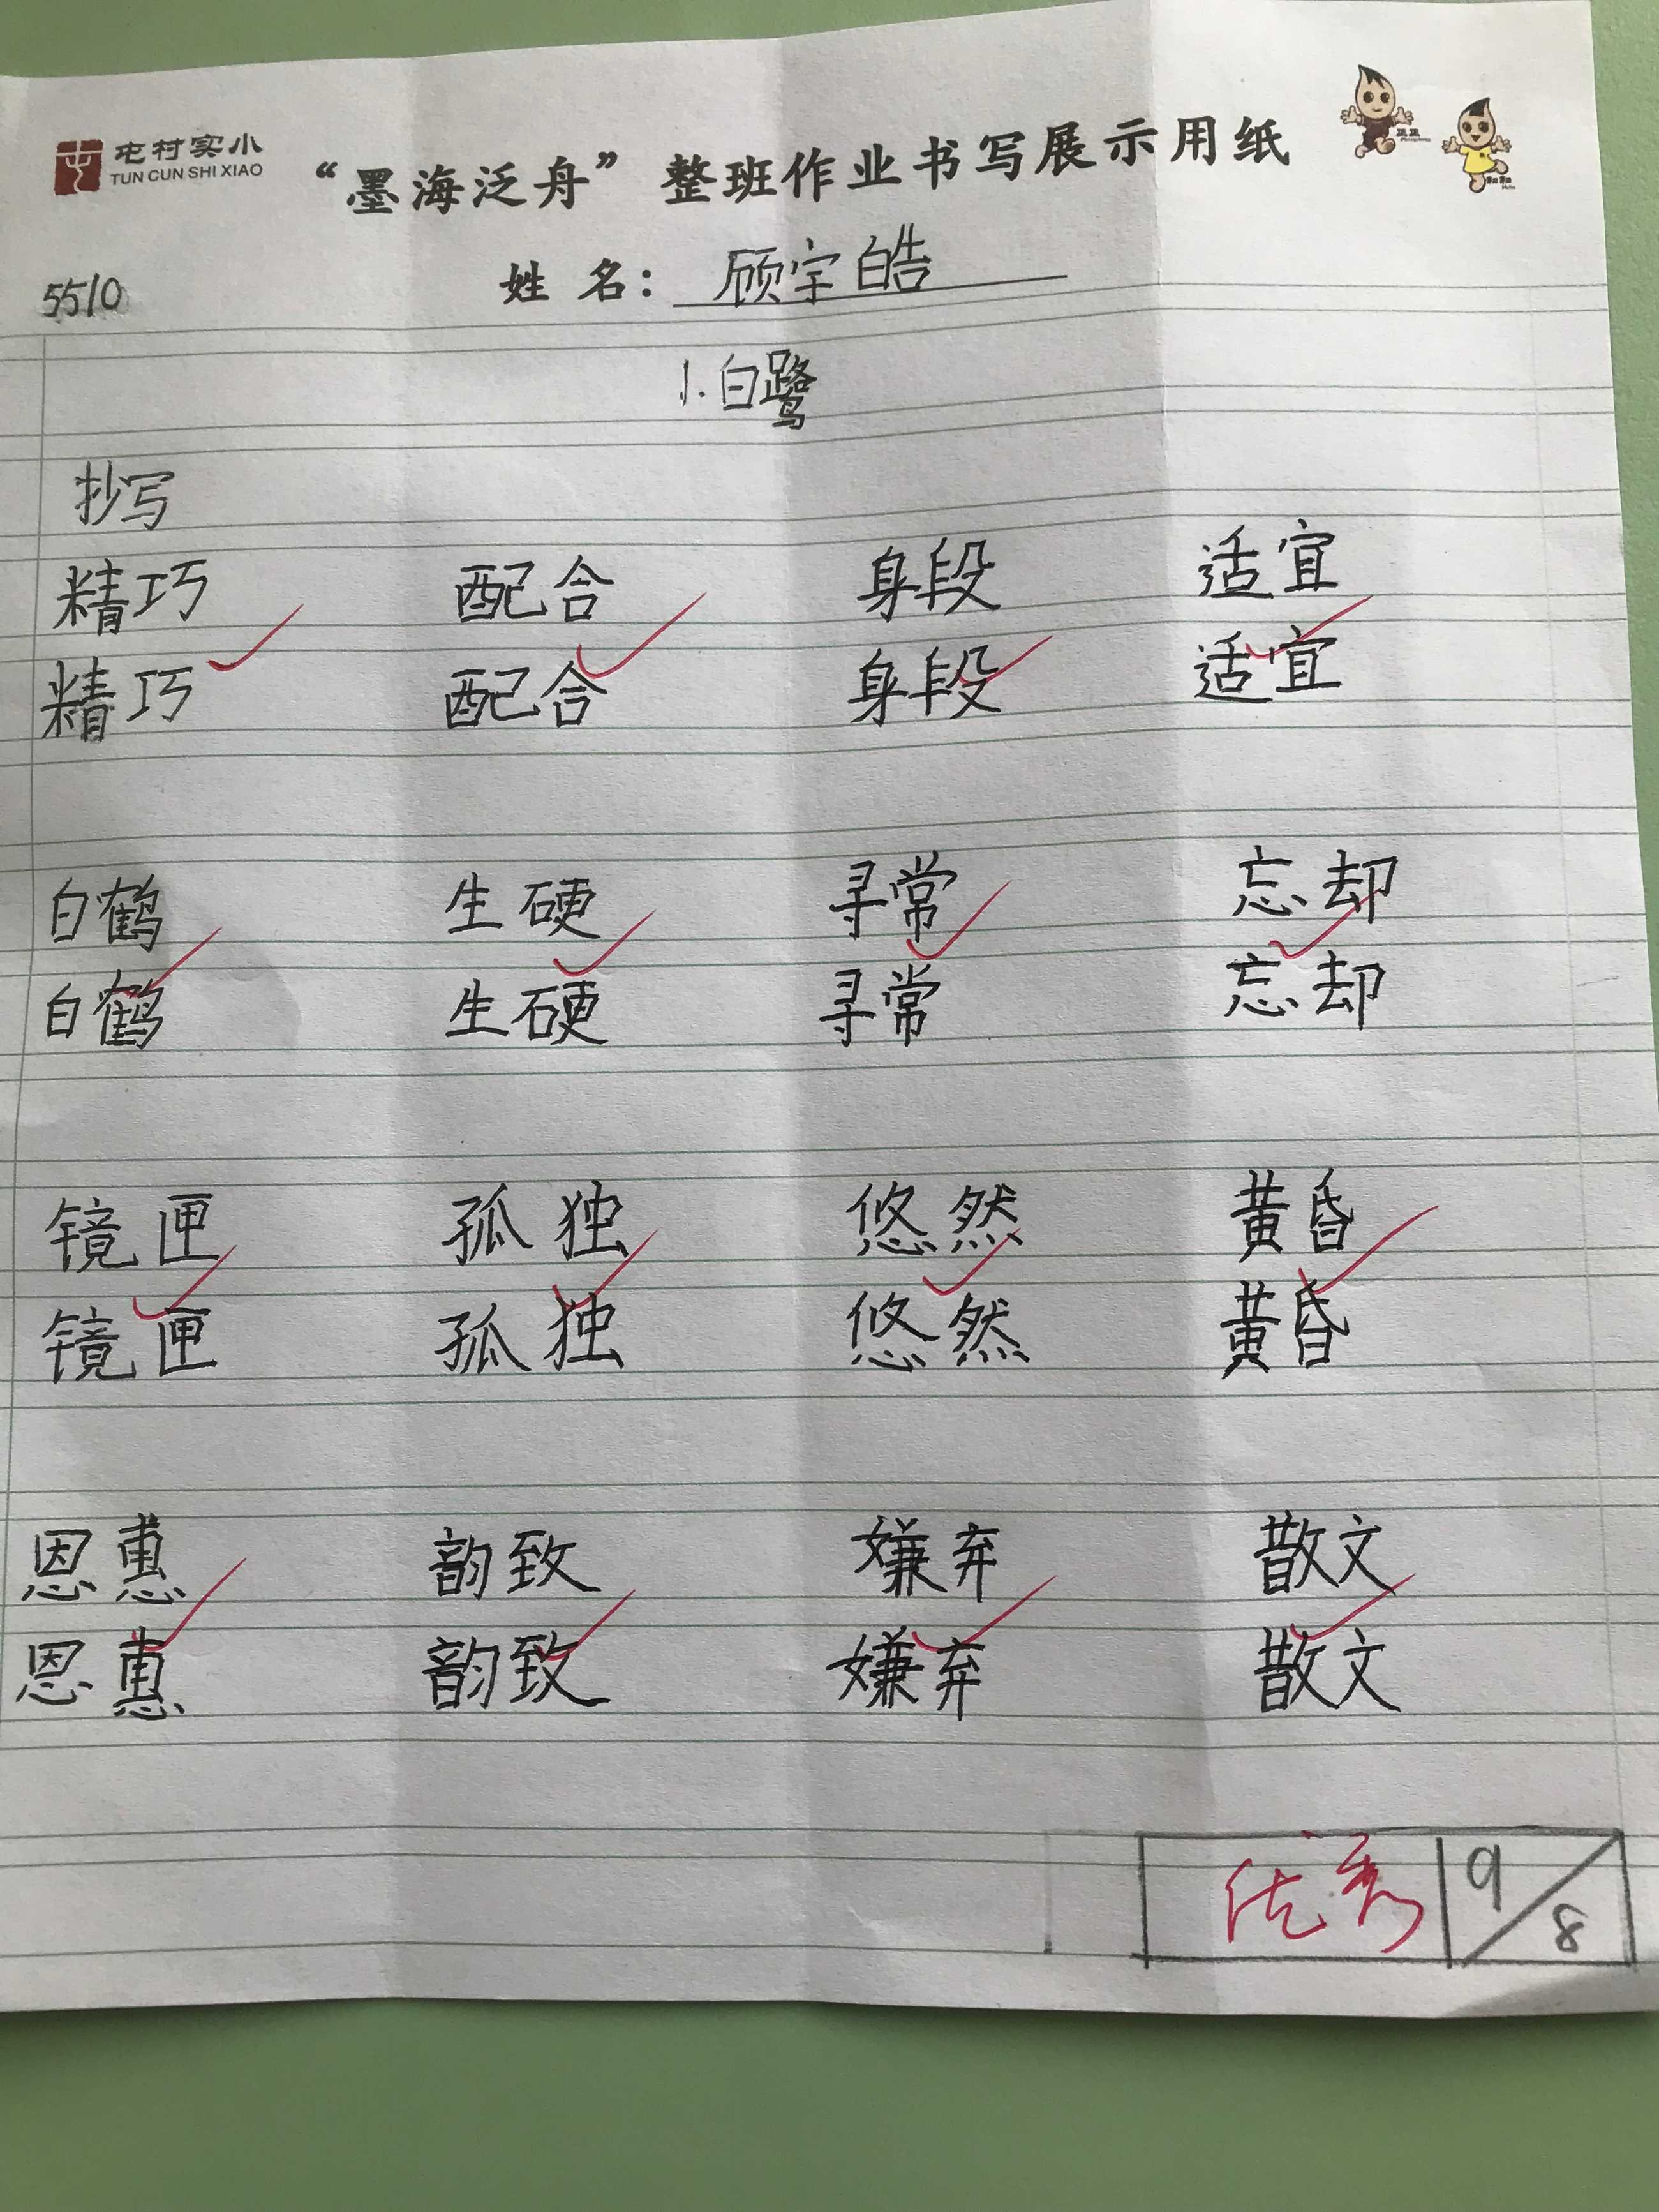 屯村实小
TUN CUN SHI XIAO
“墨海泛舟”整班作业书写展示用纸
姓 名： 顾宇皓
5510
1.白鹭
抄写
精巧 配合 身段 适宜
精巧 配合 身段 适宜
白鹤 生硬 寻常 忘却
白鹤 生硬 寻常 忘却
镜匣 孤独 悠然 黄昏
镜匣 孤独 悠然 黄昏
恩惠 韵致 嫌弃 散文
恩惠 韵致 嫌弃 散文
优秀 9/8